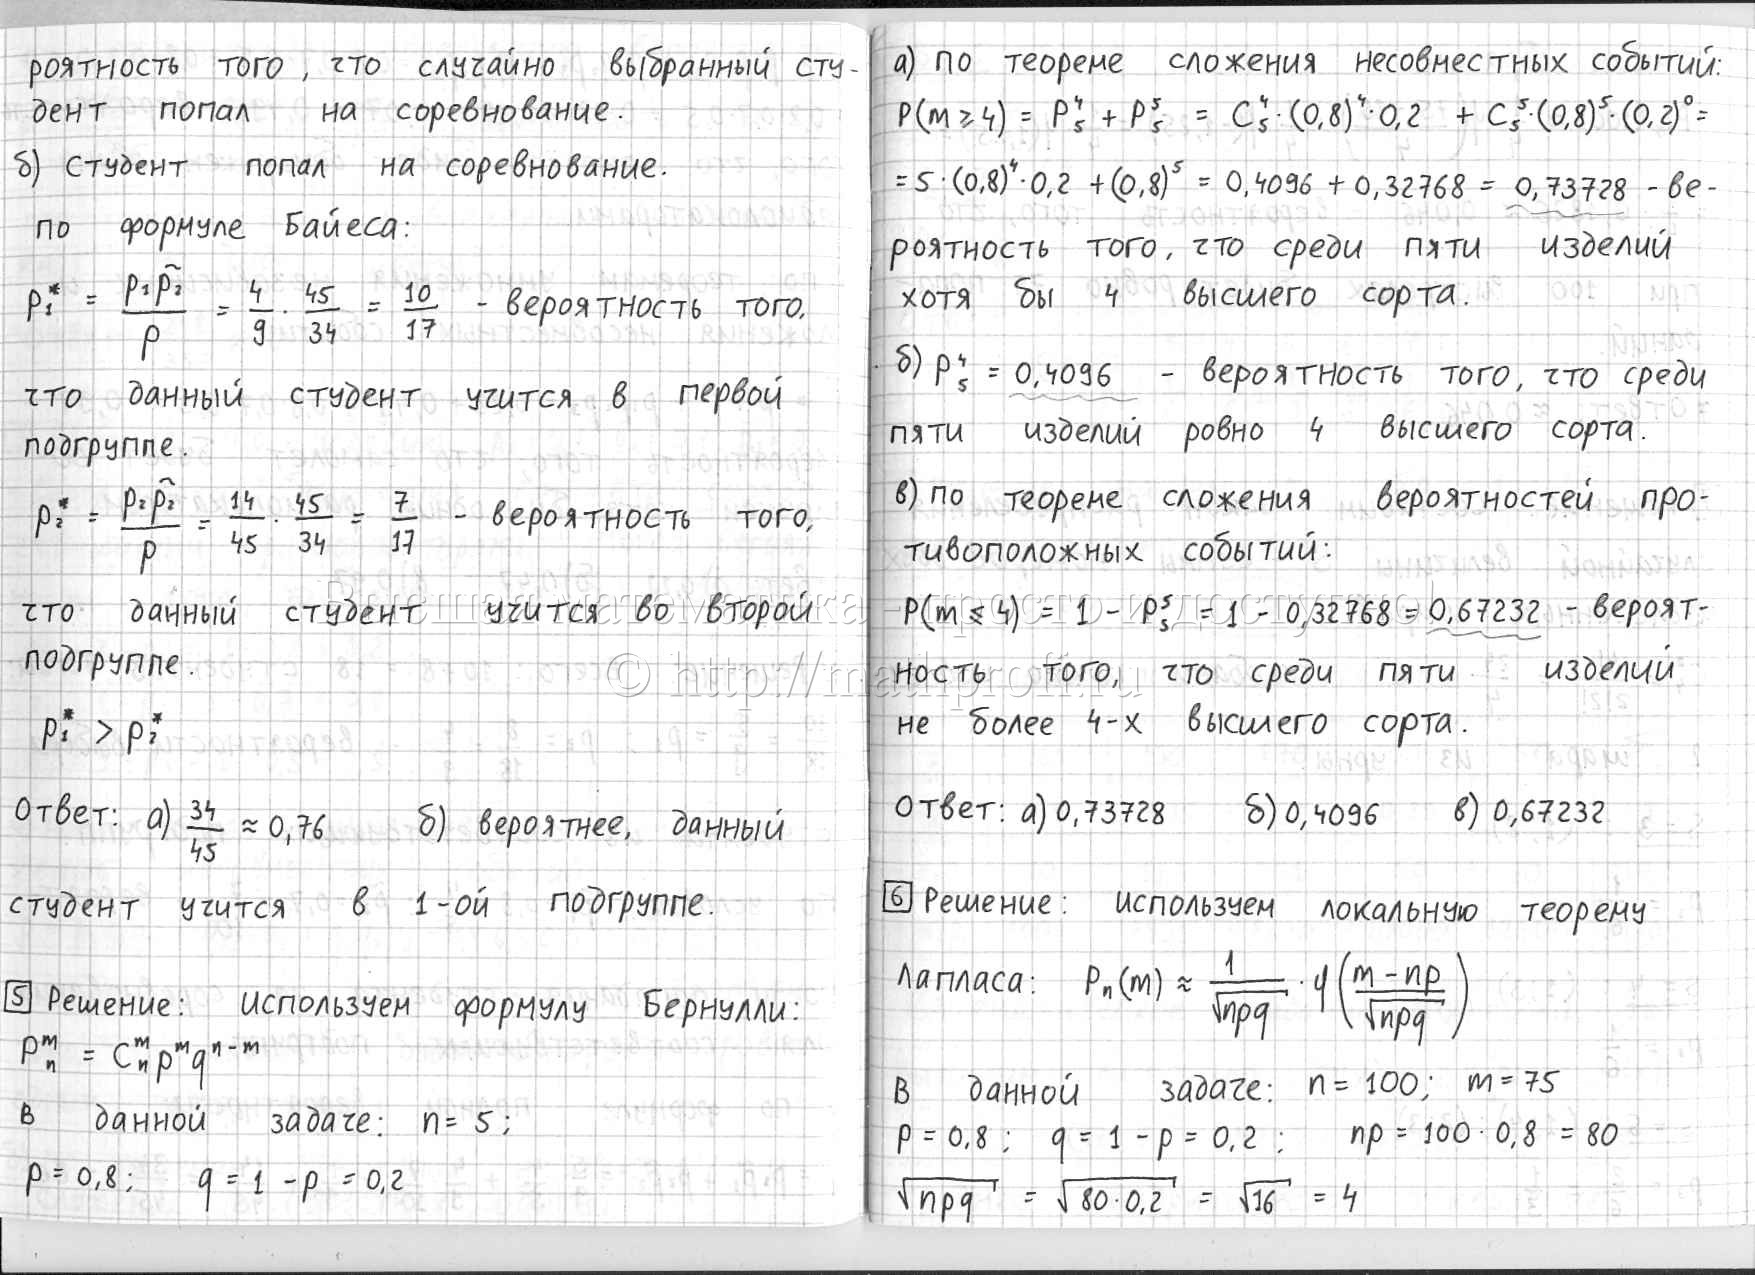 роятность того, что случайно выбранный сту-
дент попал на соревнование.
б) студент попал на соревнование.
по формуле Байеса:
p₁* = p₁p̃₂/p = 4/9 · 45/34 = 10/17 - вероятность того,
что данный студент учится в первой
подгруппе.
p₂* = p₂p̃₂/p = 14/45 · 45/34 = 7/17 - вероятность того,
что данный студент учится во второй
подгруппе.
p₁* > p₂*
Ответ: а) 34/45 ≈ 0,76 б) вероятнее, данный
студент учится в 1-ой подгруппе.
5 Решение: используем формулу Бернулли:
Pₙᵐ = Cₙᵐ pᵐ qⁿ⁻ᵐ
В данной задаче: n = 5;
p = 0,8; q = 1 - p = 0,2
а) по теореме сложения несовместных событий:
P(m ≥ 4) = P₅⁴ + P₅⁵ = C₅⁴·(0,8)⁴·0,2 + C₅⁵·(0,8)⁵·(0,2)⁰ =
= 5·(0,8)⁴·0,2 + (0,8)⁵ = 0,4096 + 0,32768 = 0,73728 - ве-
роятность того, что среди пяти изделий
хотя бы 4 высшего сорта.
б) P₅⁴ = 0,4096 - вероятность того, что среди
пяти изделий ровно 4 высшего сорта.
в) по теореме сложения вероятностей про-
тивоположных событий:
P(m ≤ 4) = 1 - P₅⁵ = 1 - 0,32768 = 0,67232 - вероят-
ность того, что среди пяти изделий
не более 4-х высшего сорта.
Ответ: а) 0,73728 б) 0,4096 в) 0,67232
6 Решение: используем локальную теорему
Лапласа: Pₙ(m) ≈ 1/√npq · φ((m - np)/√npq)
В данной задаче: n = 100; m = 75
p = 0,8; q = 1 - p = 0,2; np = 100·0,8 = 80
√npq = √80·0,2 = √16 = 4
Высшая математика – просто и доступно
© http://mathprofi.ru